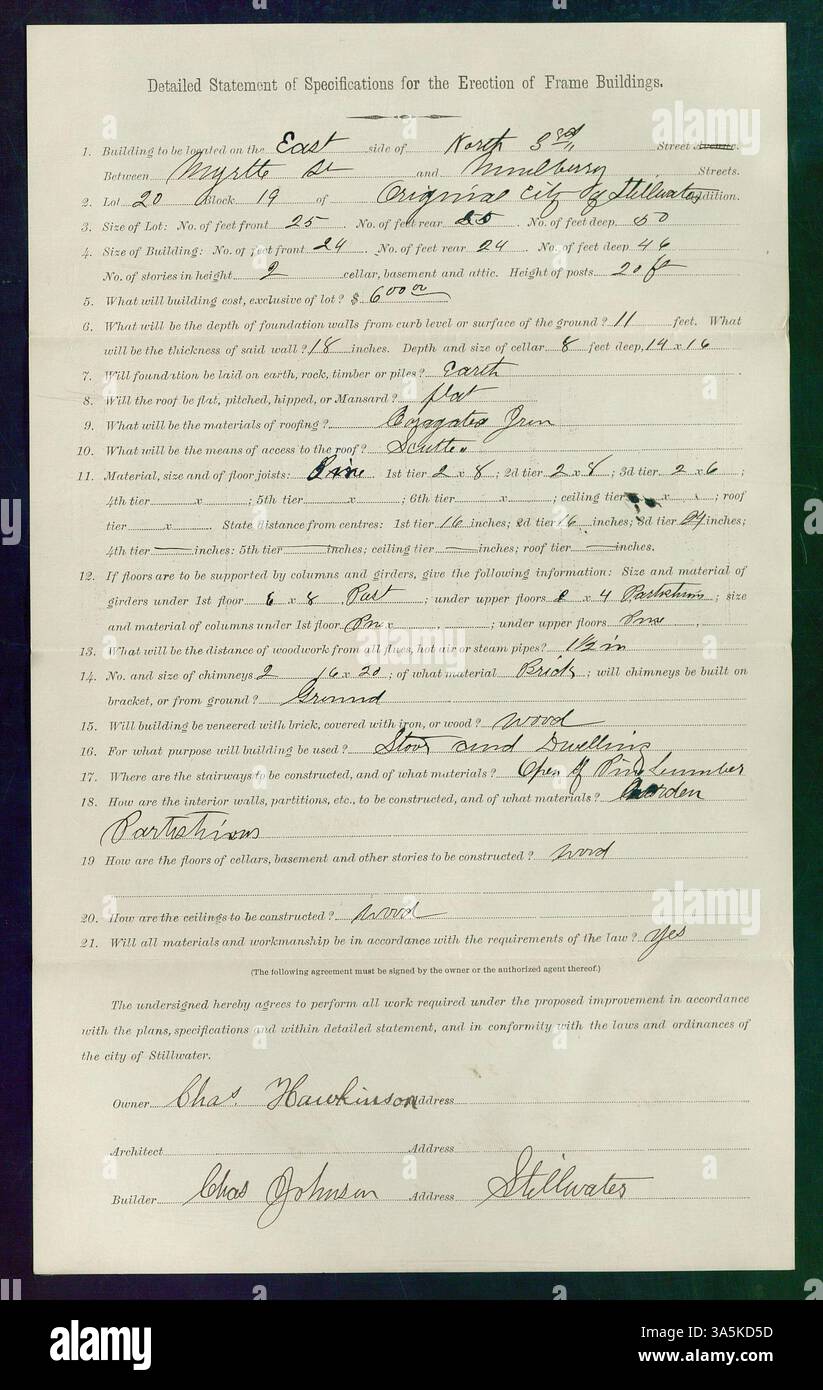 Detailed Statement of Specifications for the Erection of Frame Buildings.
1. Building to be located on the East side of North 3rd Street Avenue.
Between Myrtle St and Mulberry Streets.
2. Lot 20 Block 19 of Original City of Stillwater Addition.
3. Size of Lot: No. of feet front 25 No. of feet rear 25 No. of feet deep 50
4. Size of Building: No. of feet front 24 No. of feet rear 24 No. of feet deep 46
No. of stories in height 2 cellar, basement and attic. Height of posts 20 ft
5. What will building cost, exclusive of lot? $ 600 00
6. What will be the depth of foundation walls from curb level or surface of the ground? 11 feet. What
will be the thickness of said wall? 18 inches. Depth and size of cellar 8 feet deep, 14 x 16
7. Will foundation be laid on earth, rock, timber or piles? Earth
8. Will the roof be flat, pitched, hipped, or Mansard? flat
9. What will be the materials of roofing? Corogated Iron
10. What will be the means of access to the roof?
11. Material, size and of floor joists: Pine 1st tier 2 x 8; 2d tier 2 x 8; 3d tier 2 x 6;
4th tier x ; 5th tier x ; 6th tier x ; ceiling tier x ; roof
tier x State distance from centres: 1st tier 16 inches; 2d tier 16 inches; 3d tier 24 inches;
4th tier — inches: 5th tier — inches; ceiling tier — inches; roof tier — inches.
12. If floors are to be supported by columns and girders, give the following information: Size and material of
girders under 1st floor 6 x 8 Post ; under upper floors x 4 Partistions ; size
and material of columns under 1st floor Pine x ; under upper floors Pine
13. What will be the distance of woodwork from all flues, hot air or steam pipes? 1 1/2 in
14. No. and size of chimneys 2 16 x 20 ; of what material Brick ; will chimneys be built on
bracket, or from ground? Ground
15. Will building be veneered with brick, covered with iron, or wood? Wood
16. For what purpose will building be used? Store and Dwelling
17. Where are the stairways to be constructed, and of what materials? Open of Pine Lumber
18. How are the interior walls, partitions, etc., to be constructed, and of what materials? Worden
Partistions
19 How are the floors of cellars, basement and other stories to be constructed? Wood
20. How are the ceilings to be constructed? Wood
21. Will all materials and workmanship be in accordance with the requirements of the law? Yes
(The following agreement must be signed by the owner or the authorized agent thereof.)
The undersigned hereby agrees to perform all work required under the proposed improvement in accordance
with the plans, specifications and within detailed statement, and in conformity with the laws and ordinances of
the city of Stillwater.
Owner Chas. Hawkinson Address
Architect Address
Builder Chas Johnson Address Stillwater
alamy
Image ID: 3A5KD5D
www.alamy.com